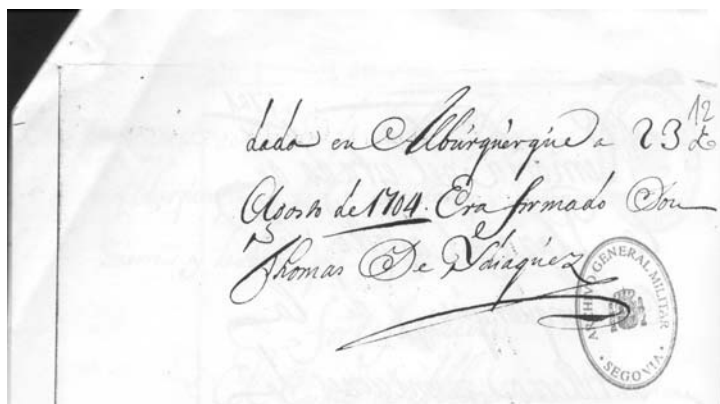 12
dada en Alburquerque a 23 de
Agosto de 1704. Era firmado Don
Thomas De Ydiaquez
ARCHIVO GENERAL MILITAR
· SEGOVIA ·